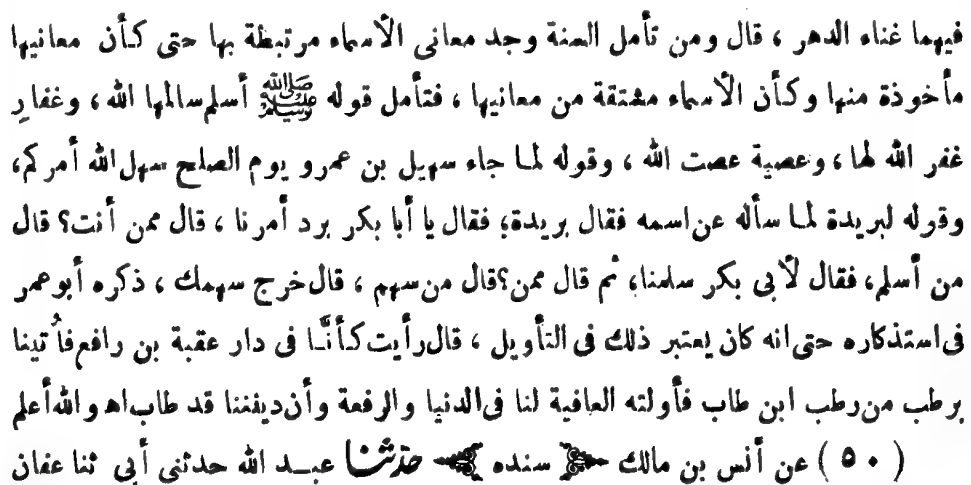 فيهما غناء الدهر ، قال ومن تأمل السنة وجد معانى الأسماء مرتبطة بها حتى كأن معانيها
مأخوذة منها وكأن الأسماء مشتقة من معانيها ، فتأمل قوله ﷺ أسلم سالمها الله ، وغفار
غفر الله لها ، وعصية عصت الله ، وقوله لما جاء سهيل بن عمرو يوم الصلح سهل الله أمركم،
وقوله لبريدة لما سأله عن اسمه فقال بريدة؛ فقال يا أبا بكر برد أمرنا ، قال ممن أنت؟ قال
من أسلم، فقال لأبى بكر سلمنا، ثم قال ممن؟ قال من سهم ، قال خرج سهمك ، ذكره أبو عمر
فى استذكاره حتى انه كان يعتبر ذلك فى التأويل ، قال رأيت كأنَّا فى دار عقبة بن رافع فأُتينا
برطب من رطب ابن طاب فأولته العافية لنا فى الدنيا والرفعة وأن ديننا قد طاب اه والله أعلم
( ٥٠ ) عن أنس بن مالك ﴿ سنده ﴾ حدثنا عبد الله حدثنى أبى ثنا عفان